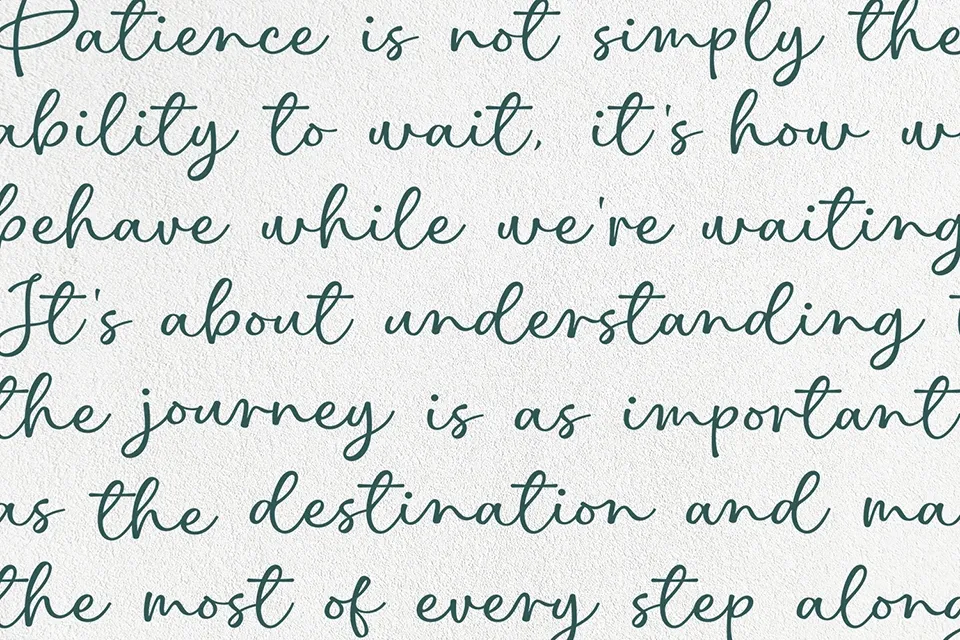 Patience is not simply the
ability to wait, it's how w
behave while we're waiting
It's about understanding t
the journey is as important
as the destination and ma
the most of every step along